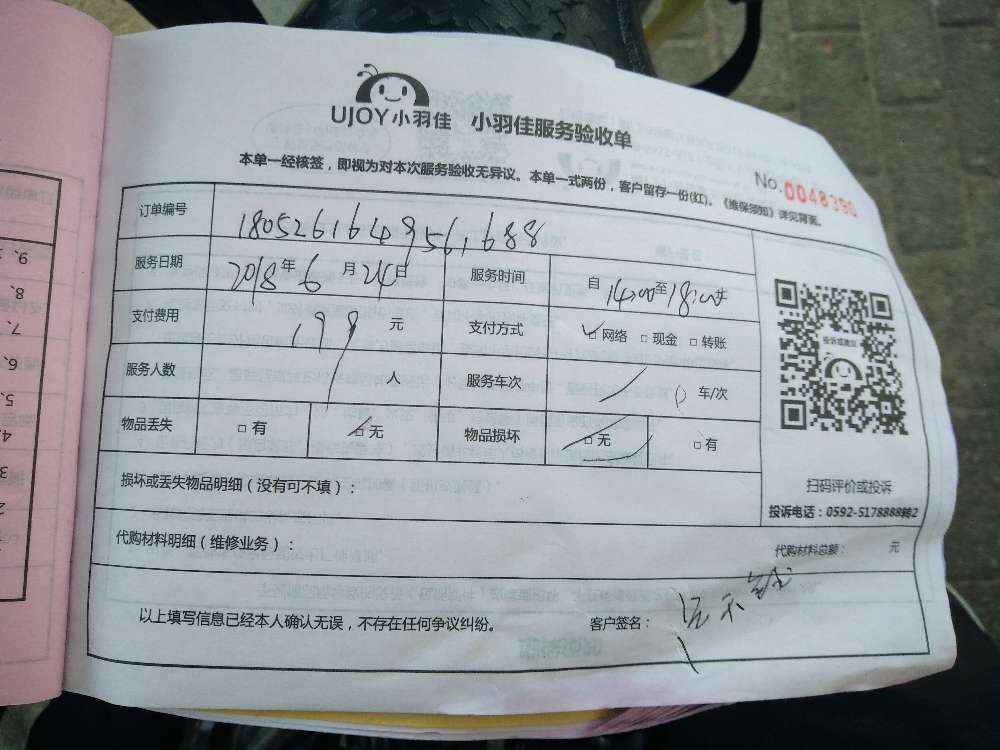 UJOY小羽佳 小羽佳服务验收单
本单一经核签，即视为对本次服务验收无异议。本单一式两份，客户留存一份(红)。《维保须知》详见背面。
No.0048390
订单编号 180526164956,688
服务日期 2018年6月24日 服务时间 自14:00至18:00
支付费用 198元 支付方式 网络 现金 转账
服务人数 人 服务车次 车/次
物品丢失 有 无 物品损坏 无 有
损坏或丢失物品明细（没有可不填）：
代购材料明细（维修业务）： 代购材料总额： 元
以上填写信息已经本人确认无误，不存在任何争议纠纷。 客户签名：
投诉或建议
扫码评价或投诉
投诉电话：0592-5178888转2
9、
8、
7、
6、
5、
4、
3
2
1